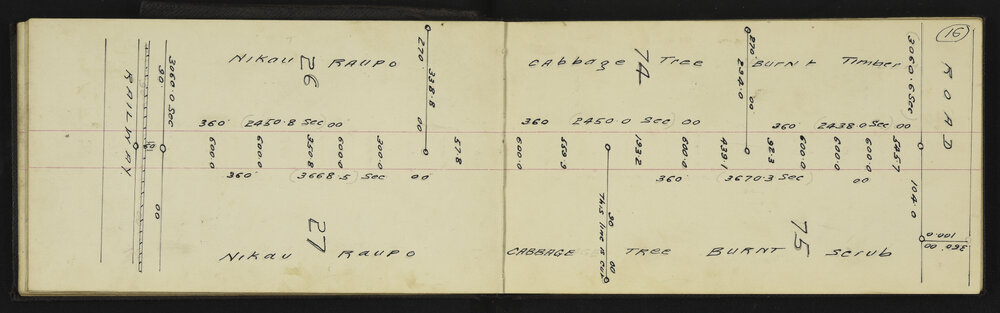 16
Nikau RAUPO
26
CABBAGE Tree BURNT Timber
74
ROAD
RAILWAY
3060.0 Sec
90 00
270 338.8 00
270 234.0 00
3060.6 Sec
360 2450.8 Sec 00
360 2450.0 Sec 00
360 2438.0 Sec 00
600.0
600.0
350.8
600.0
300.0
57.8
600.0
559.2
193.2
600.0
439.1
92.3
600.0
600.0
600.0
545.7
104.0
360 3668.5 Sec 00
360 3670.3 Sec 00
90 00
This line is cut
100.0
360. 00
27
Nikau Raupo
75
CABBAGE Tree BURNT Scrub